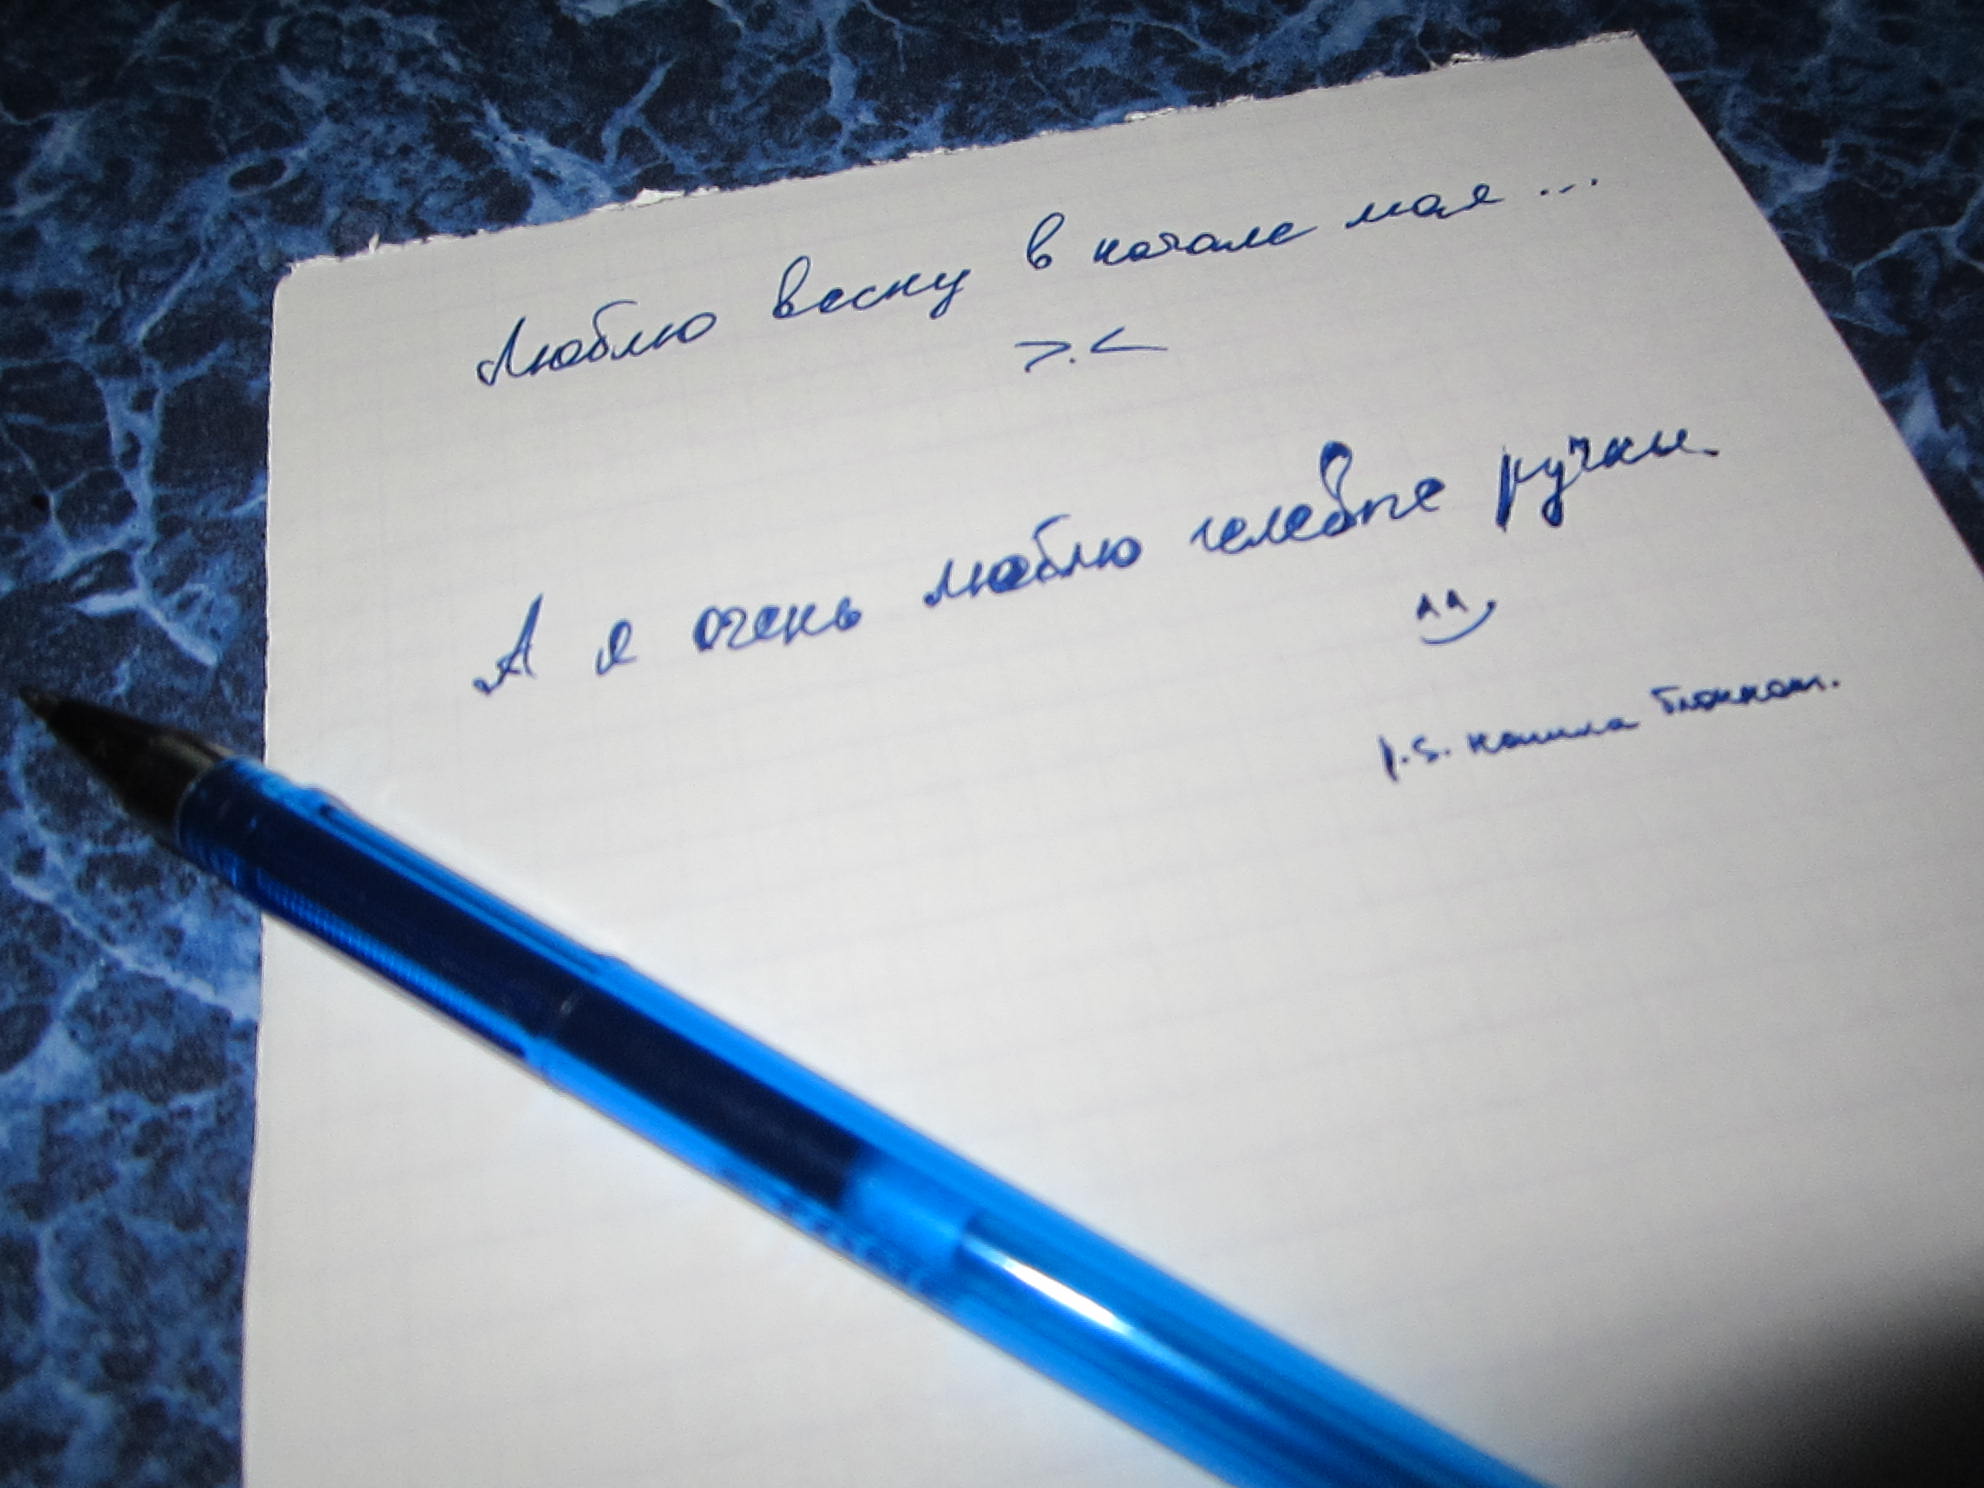 Люблю весну в начале мая...
>.<
А я очень люблю гелевые ручки.
^^
P.S. нашла блокнот.